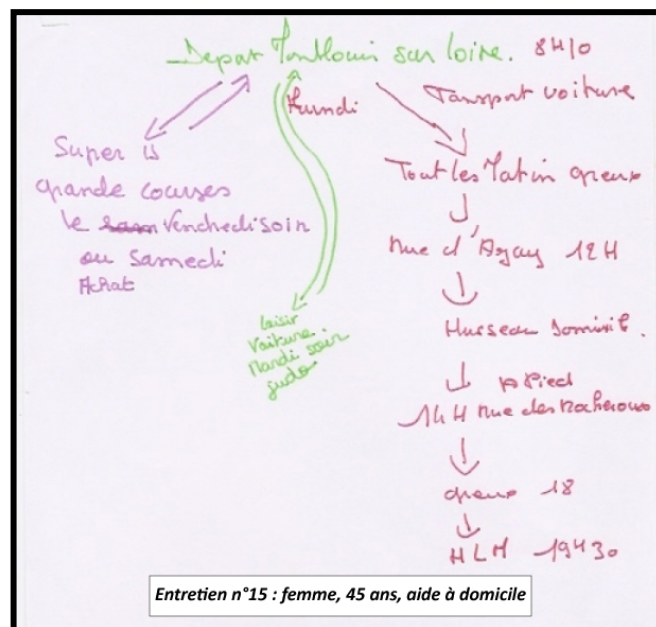 Depart Montlouis sur loire. 8H10
Lundi
Transport voiture
Super U
grande courses
le sam Venchedi soir
ou samedi
Achat
loisir
Voiture.
Mardi soir
judo
Tout les Matin
Rue d'Azay 12H
Husseau
a Pied
14H Rue des Rocheroux
18
HLM 19H30
Entretien n°15 : femme, 45 ans, aide à domicile